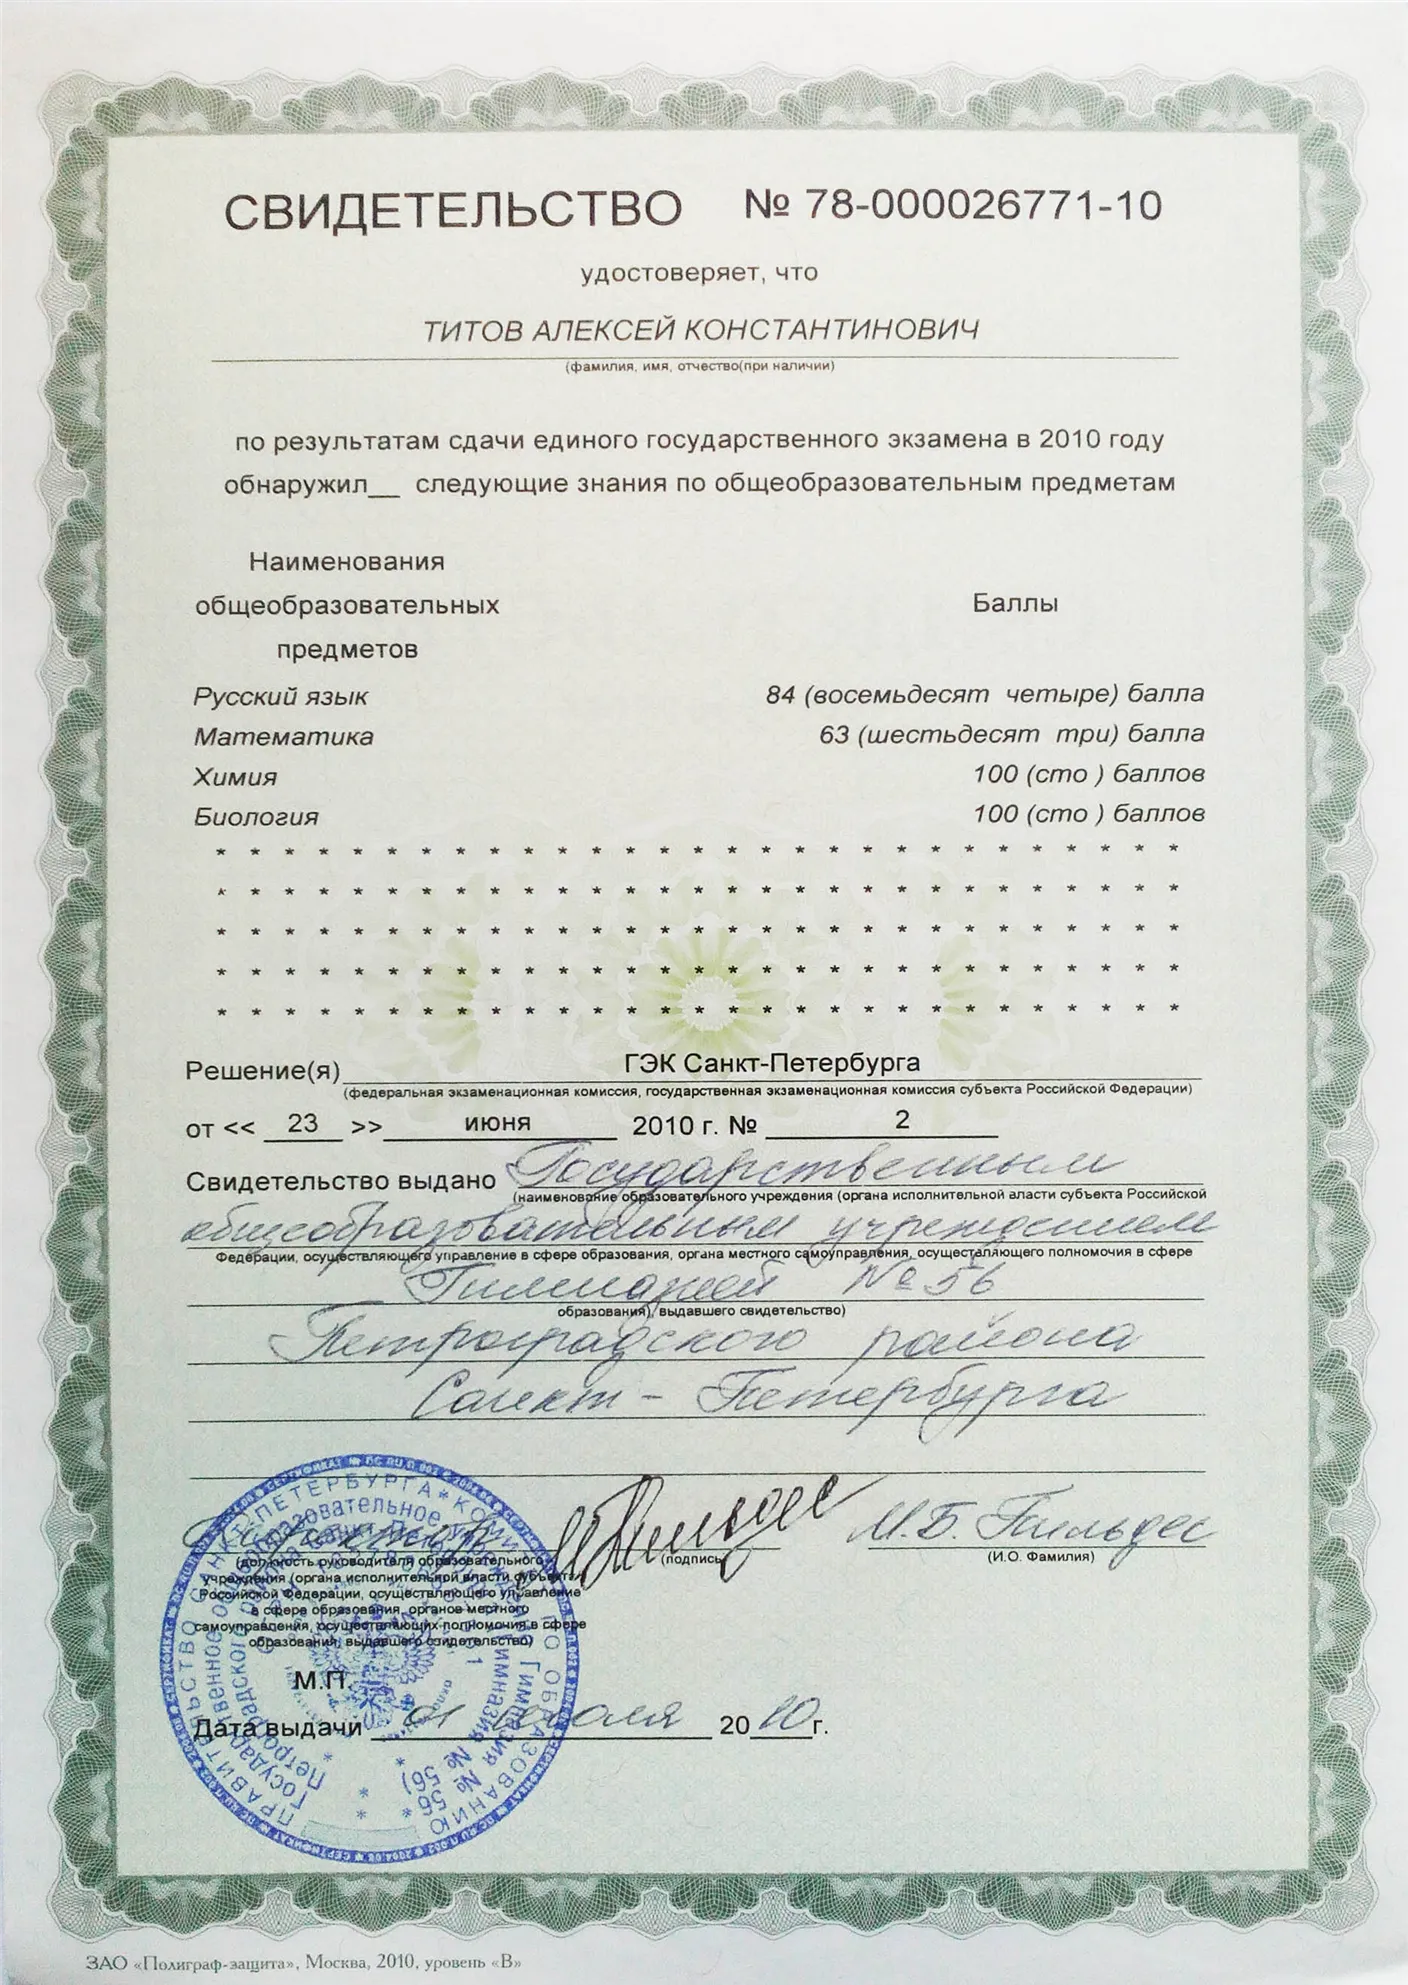 СВИДЕТЕЛЬСТВО № 78-000026771-10
удостоверяет, что
ТИТОВ АЛЕКСЕЙ КОНСТАНТИНОВИЧ
(фамилия, имя, отчество(при наличии)
по результатам сдачи единого государственного экзамена в 2010 году
обнаружил__ следующие знания по общеобразовательным предметам
Наименования
общеобразовательных Баллы
предметов
Русский язык 84 (восемьдесят четыре) балла
Математика 63 (шестьдесят три) балла
Химия 100 (сто ) баллов
Биология 100 (сто ) баллов
* * * * * * * * * * * * * * * * * * * * * * * * * * * * *
* * * * * * * * * * * * * * * * * * * * * * * * * * * * *
* * * * * * * * * * * * * * * * * * * * * * * * * * * * *
* * * * * * * * * * * * * * * * * * * * * * * * * * * * *
* * * * * * * * * * * * * * * * * * * * * * * * * * * * *
Решение(я) ГЭК Санкт-Петербурга
(федеральная экзаменационная комиссия, государственная экзаменационная комиссия субъекта Российской Федерации)
от << 23 >> июня 2010 г. № 2
Свидетельство выдано Государственным
(наименование образовательного учреждения (органа исполнительной власти субъекта Российской
общеобразовательным учреждением
Федерации, осуществляющего управление в сфере образования, органа местного самоуправления, осуществляющего полномочия в сфере
Гимназией № 56
образования), выдавшего свидетельство)
Петроградского района
Санкт-Петербурга
М.Б. Пильдес
(должность руководителя образовательного (подпись) (И.О. Фамилия)
учреждения (органа исполнительной власти субъекта
Российской Федерации, осуществляющего управление
в сфере образования, органов местного
самоуправления, осуществляющих полномочия в сфере
образования, выдавшего свидетельство)
М.П.
Дата выдачи 01 июля 2010 г.
ПРАВИТЕЛЬСТВО САНКТ-ПЕТЕРБУРГА * КОМИТЕТ ПО ОБРАЗОВАНИЮ
ЗАО «Полиграф-защита», Москва, 2010, уровень «В»